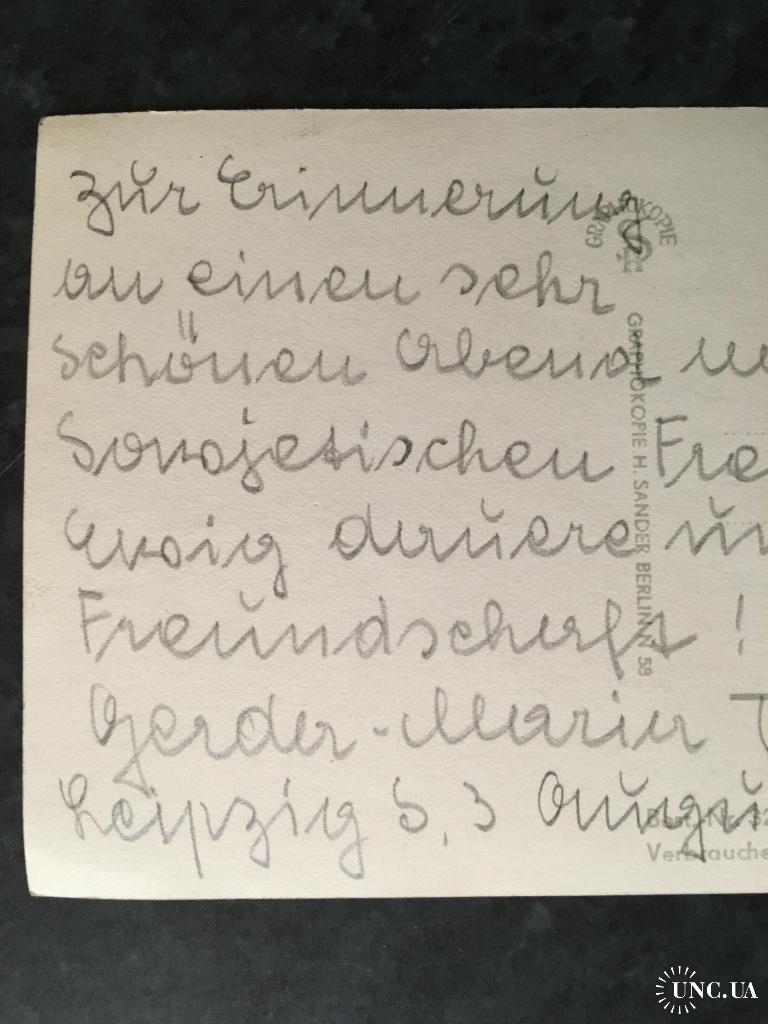 Zur Erinnerung
an einen sehr
schönen Abend
Sowjetischen Fre
Ewig dauere un
Freundschaft !
Gerda-Maria T
Leipzig 5, 3 Augu
GRAPHOKOPIE
GRAPHOKOPIE H. SANDER BERLIN N 58
Verbrauche
UNC.UA